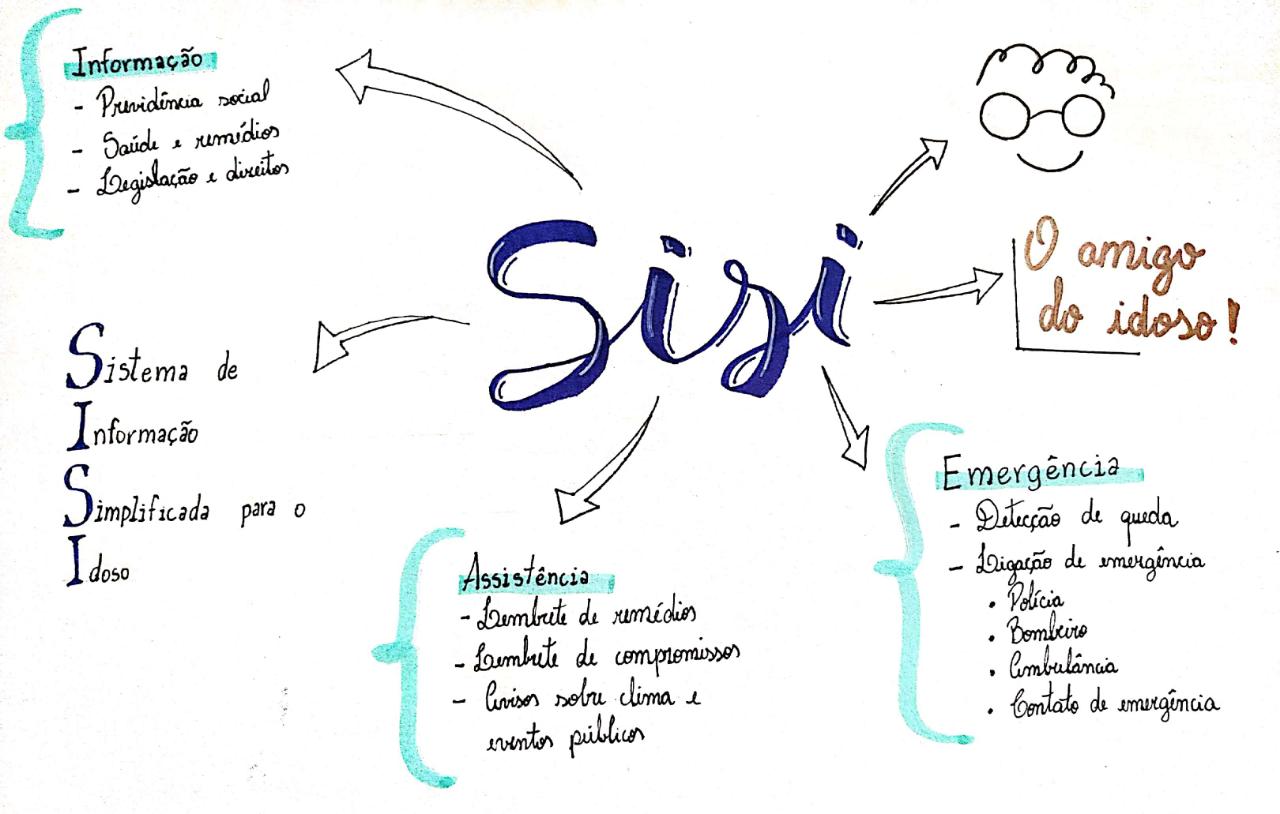 Informação
- Previdência social
- Saúde e remédios
- Legislação e direitos
Sisi
O amigo
do idoso!
Sistema de
Informação
Simplificada para o
Idoso
Assistência
- Lembrete de remédios
- Lembrete de compromissos
- Avisos sobre clima e
eventos públicos
Emergência
- Detecção de queda
- Ligação de emergência
• Polícia
• Bombeiro
• Ambulância
• Contato de emergência